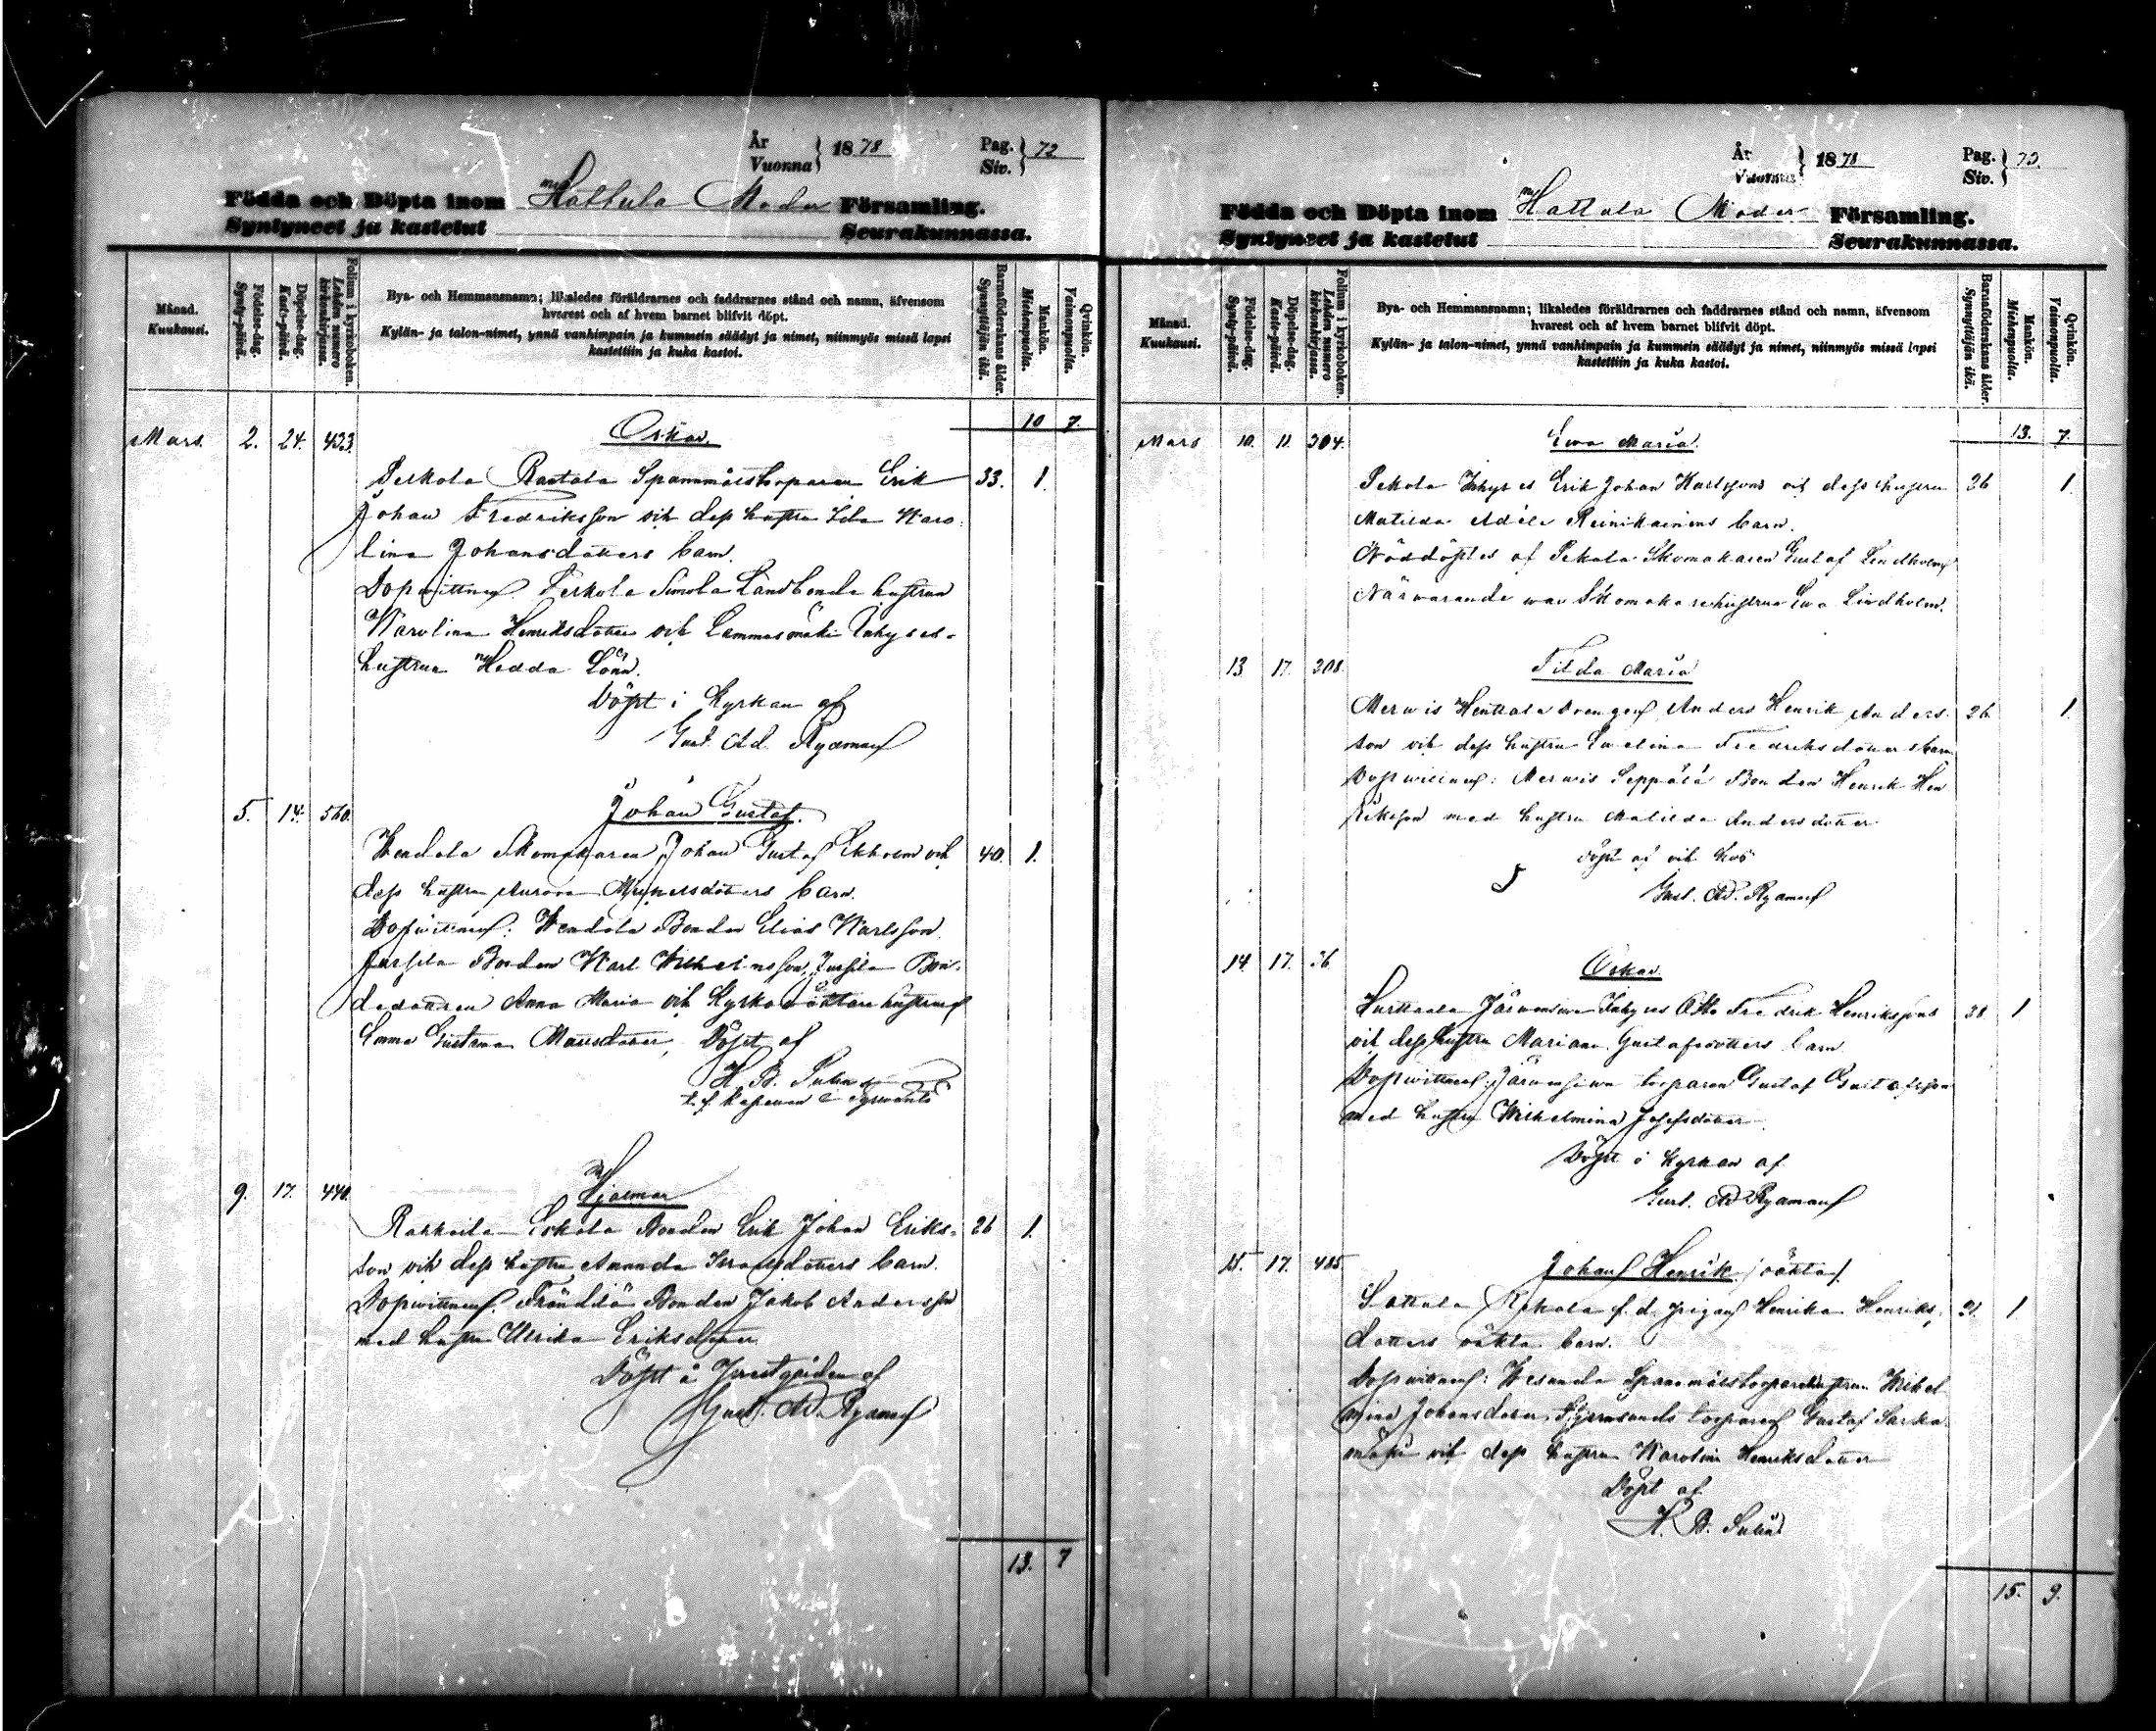 År
Vuonna } 1878
Pag.
Siv. } 72
Födda och Döpta inom Hattula Moder Församling.
Syntyneet ja kastetut Seurakunnassa.
Månad.
Kuukausi.
Födelse-dag.
Synty-päivä.
Döpelse-dag.
Kaste-päivä.
Folium i kyrkoboken.
Lehden numero
kirkonkirjassa.
Bya- och Hemmansnamn; likaledes föräldrarnes och faddrarnes stånd och namn, äfvensom
hvarest och af hvem barnet blifvit döpt.
Kylän- ja talon-nimet, ynnä vanhimpain ja kummein säädyt ja nimet, niinmyös missä lapsi
kastettiin ja kuka kastoi.
Barnaföderskans ålder.
Synnyttäjän ikä.
Mankön.
Miehenpuolia.
Qvinkön.
Vaimonpuolia.
10 7.
Mars. 2. 24. 433. Oskar.
Perkola Rastala Spannmålstorparen Erik 33. 1.
Johan Fredriksson och dess hustru Ida Karo-
lina Johansdotters barn.
Dopvittnen Perkola Simola Landbonde hustrun
Karolina Henriksdotter och Lammasmäki Inhyses-
hustrun Hedda Lönn.
Döpt i Kyrkan af
Gust. Ad. Rydman
5. 14. 560. Johan Gustaf.
Skomakaren Johan Gustaf Ekholm och 40. 1.
dess hustru Aurora barn.
Dopvittnen: Bonden Elias Karlsson
Bonden Karl Wilhelmsson, Bon-
dedottren Anna Maria och Kyrkoväktare hustrun
Emma Gustava Döpt af
H. B.
t. f. Kapellan i Tyrvändö
9. 17. 440. Hjalmar
Rahkoila Eskola Bonden Erik Johan Eriks- 26 1.
son och dess hustru Amanda Israelsdotters barn.
Dopvittnen Bonden Jakob Andersson
med hustru Ulrika Eriksdotter
Döpt å Prestgården af
Gust. Ad. Ryaman
13. 7
År
Vuonna } 1878
Pag.
Siv. } 73.
Födda och Döpta inom Hattula Moder Församling.
Syntyneet ja kastetut Seurakunnassa.
Månad.
Kuukausi.
Födelse-dag.
Synty-päivä.
Döpelse-dag.
Kaste-päivä.
Folium i kyrkoboken.
Lehden numero
kirkonkirjassa.
Bya- och Hemmansnamn; likaledes föräldrarnes och faddrarnes stånd och namn, äfvensom
hvarest och af hvem barnet blifvit döpt.
Kylän- ja talon-nimet, ynnä vanhimpain ja kummein säädyt ja nimet, niinmyös missä lapsi
kastettiin ja kuka kastoi.
Barnaföderskans ålder.
Synnyttäjän ikä.
Mankön.
Miehenpuolia.
Qvinkön.
Vaimonpuolia.
13. 7.
Mars 10. 11. 304. Ewa Maria.
Pekola Inhyses Erik Johan Karlssons och dess hustru 26 1.
Matilda Adéle Reinikainens barn.
Nöddöptes af Pekola Skomakaren Gustaf Lindholm
Närvarande war Skomakarehustrun Ewa Lindholm.
13. 17. 308. Tilda Maria
Merwis Henttala Drengen Anders Henrik Anders- 26 1.
son och dess hustru Ewelina Fredriksdotters barn
Dopwittnen: Merwis Seppälä Bonden Henrik Hen
riksson med hustru Matilda Andersdotter
Döpt af och hos
Gust. Ad. Ryaman
14. 17. 36. Oskar.
Inhyses Otto Fredrik Henrikssons 38 1
och dess hustru Mariana Gustafsdotters barn
Dopwittnen: torparen Gustaf Gustafsson
med hustru Wilhelmina Josefsdotter
Döpt i Kyrkan af
Gust. Ad. Ryaman
15. 17. 485. Johan Henrik (oäkta)
Sattula f. d. pigan Henrika Henriks- 21. 1.
dotters oäkta barn.
Dopwittnen: Wesunda Spannmålstorparehustrun Wilhel
mina Johansdotter, torparen Gustaf Sarka
mäki och dess hustru Karolina Henriksdotter
Döpt af
H. B.
15. 9.